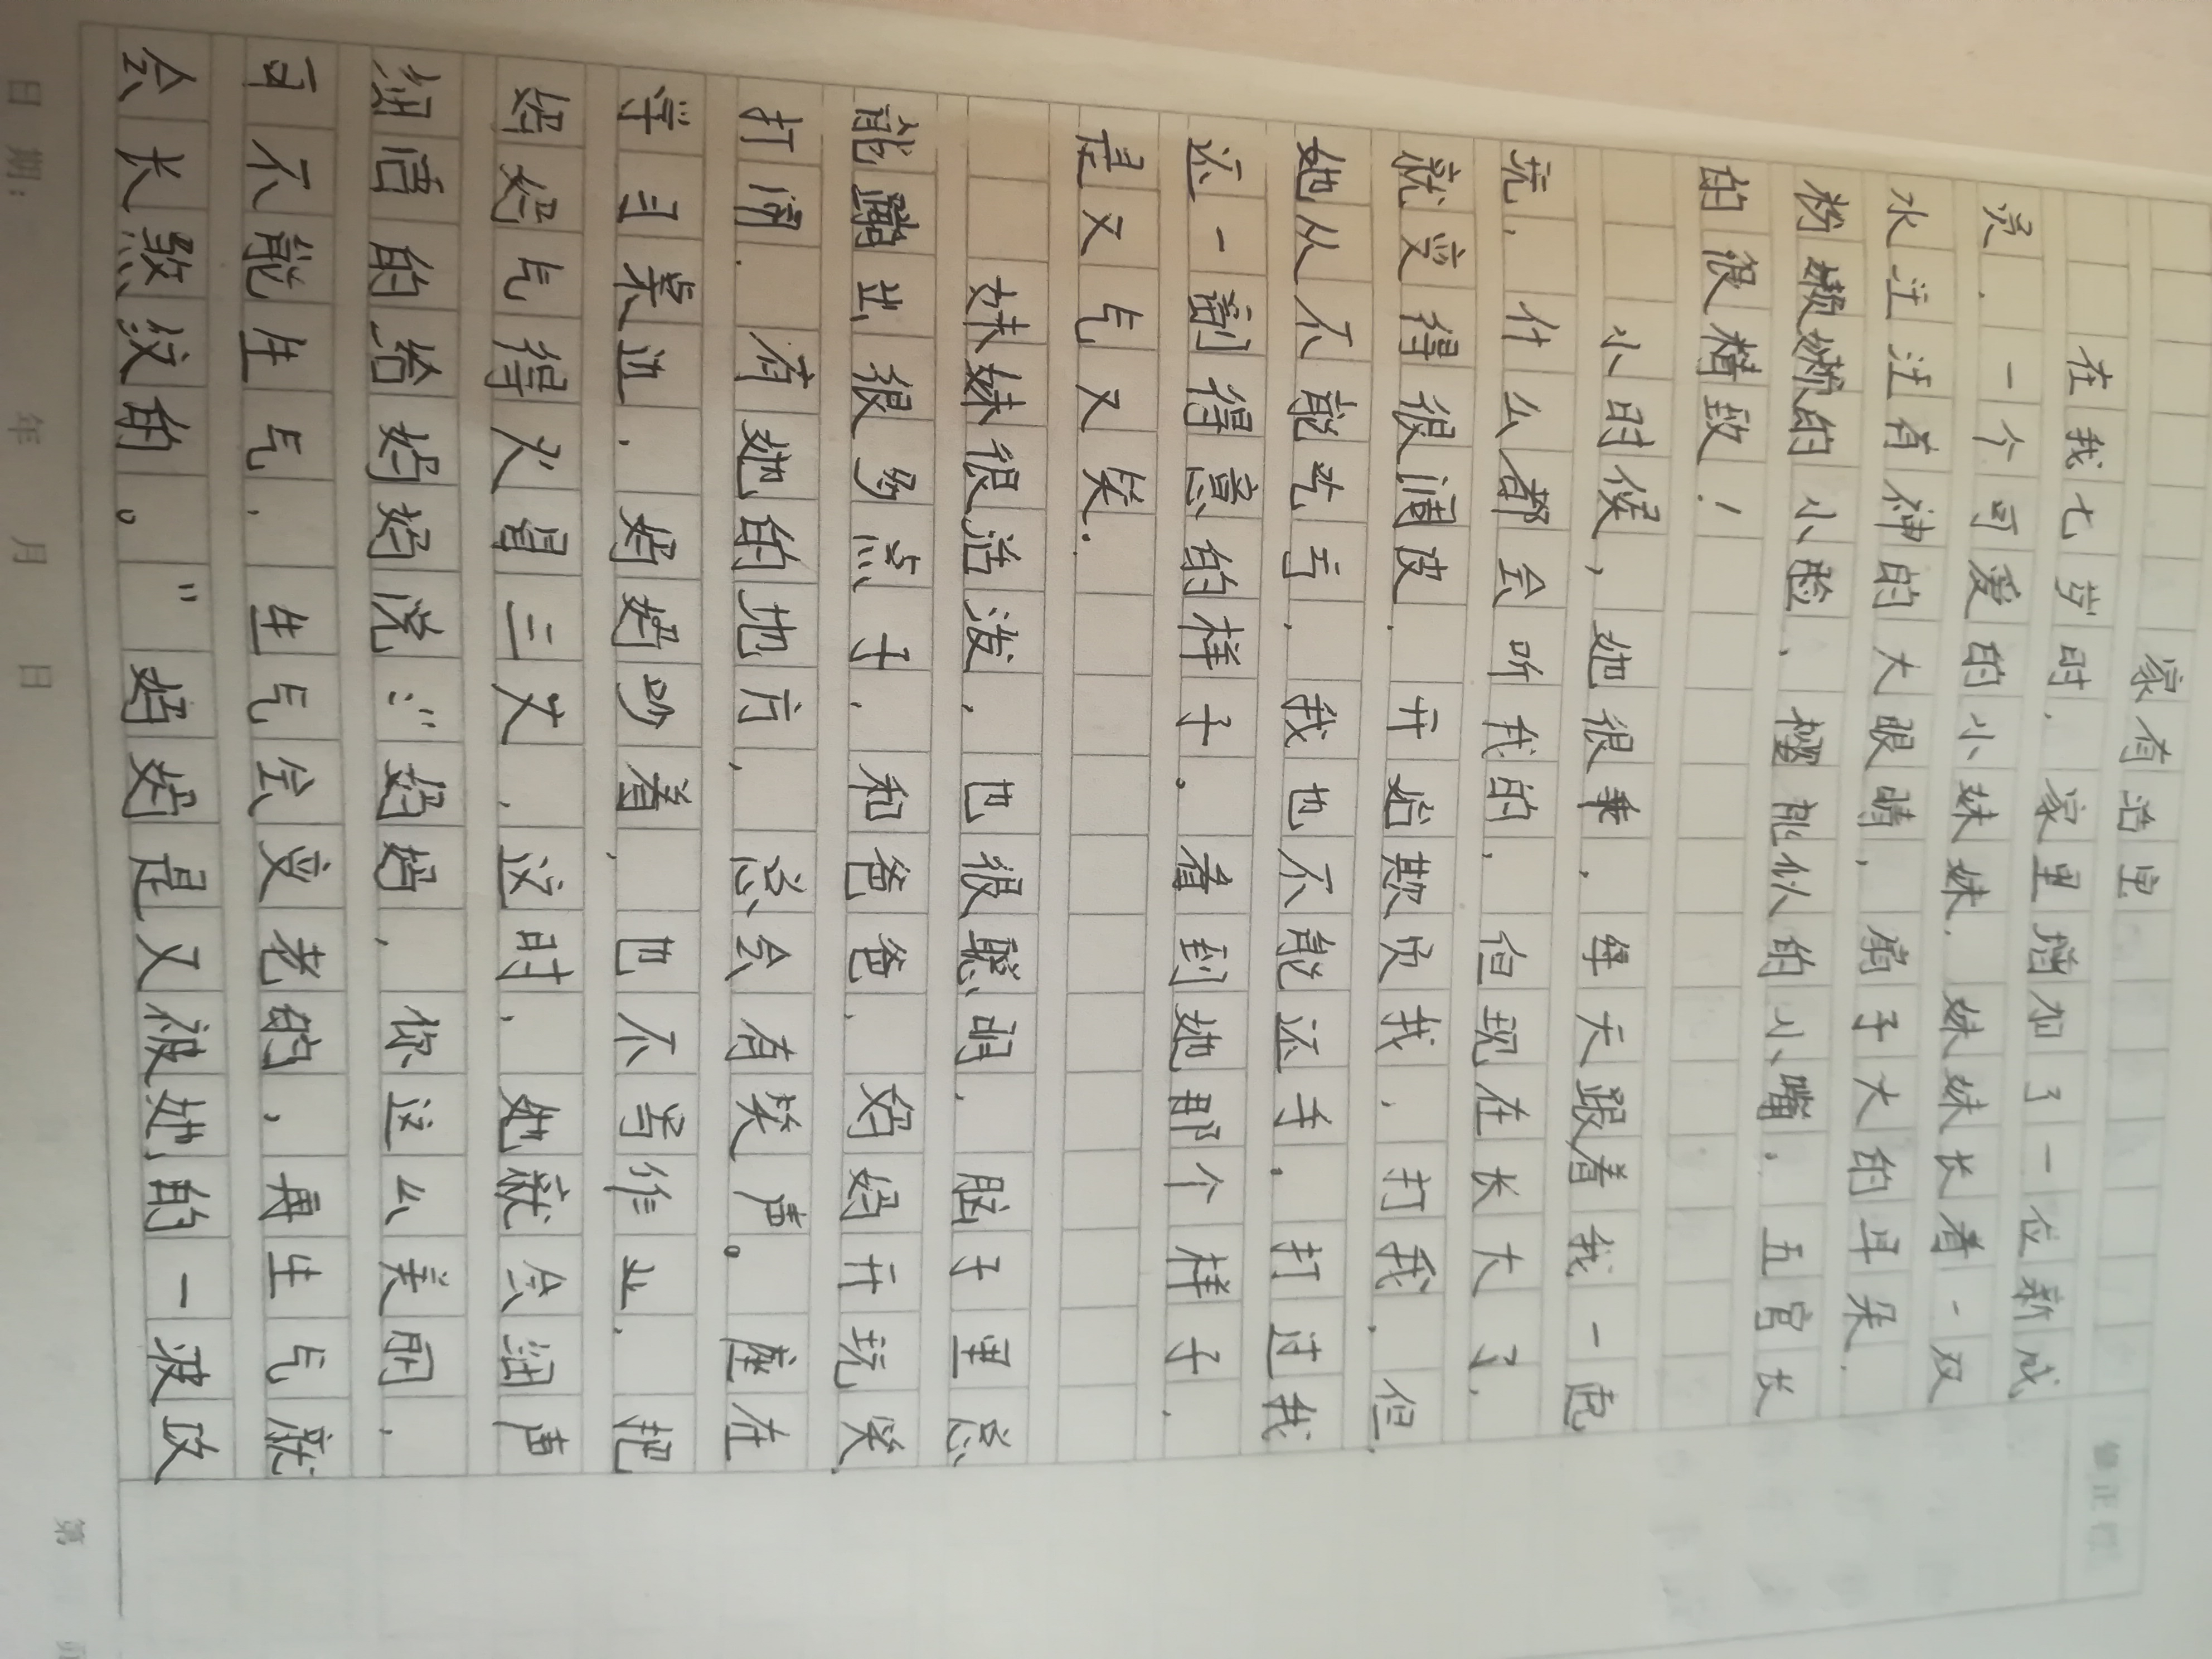 家有活宝
在我七岁时，家里增加了一位新成
员，一个可爱的小妹妹，妹妹长着一双
水汪汪有神的大眼睛，扇子大的耳朵，
粉嫩嫩的小脸、樱桃似的小嘴，五官长
的很精致！
小时候，她很乖，每天跟着我一起
玩，什么都会听我的，但现在长大了，
就变得很调皮，开始欺负我，打我，但
她从不能吃亏，我也不能还手，打过我
还一副得意的样子。看到她那个样子，
是又气又笑。
妹妹很活泼，也很聪明，脑子里总
能蹦出很多点子，和爸爸、妈妈开玩笑
打闹，有她的地方，总会有笑声。座在
学习桌边，妈妈吵着，也不当作业，把
妈妈气得火冒三丈，这时，她就会细声
细语的给妈妈说：“妈妈，你这么美丽，
可不能生气，生气会变老的，再生气就
会长皱纹的。”妈妈是又被她的一波政
修正栏
日期： 年 月 日
第 页